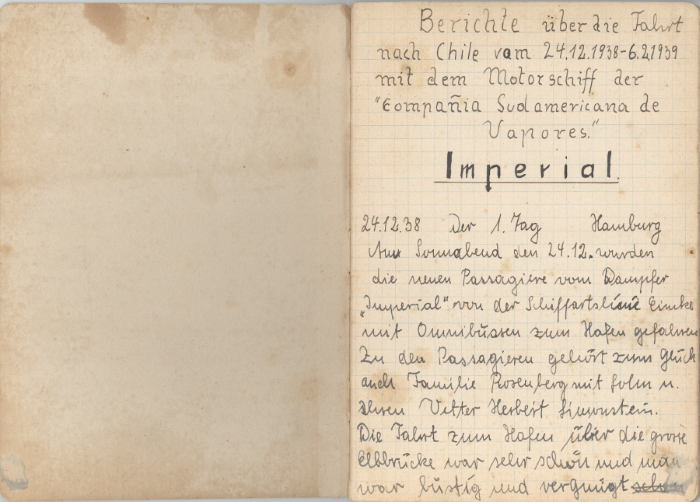 Berichte über die Fahrt
nach Chile vom 24.12.1938-6.2.1939
mit dem Motorschiff der
"Compañia Sudamericana de
Vapores."
Imperial.
24.12.38 Der 1. Tag Hamburg
Am Sonnabend den 24.12. wurden
die neuen Passagiere vom Dampfer
„Imperial" von der Schiffartslinie
mit Omnibussen zum Hafen gefahren
Zu den Passagieren gehört zum Glück
auch Familie Rosenberg mit Sohn u.
Ihren Vetter Herbert Simonstein.
Die Fahrt zum Hafen über die grosse
Elbbrücke war sehr schön und man
war lustig und vergnügt